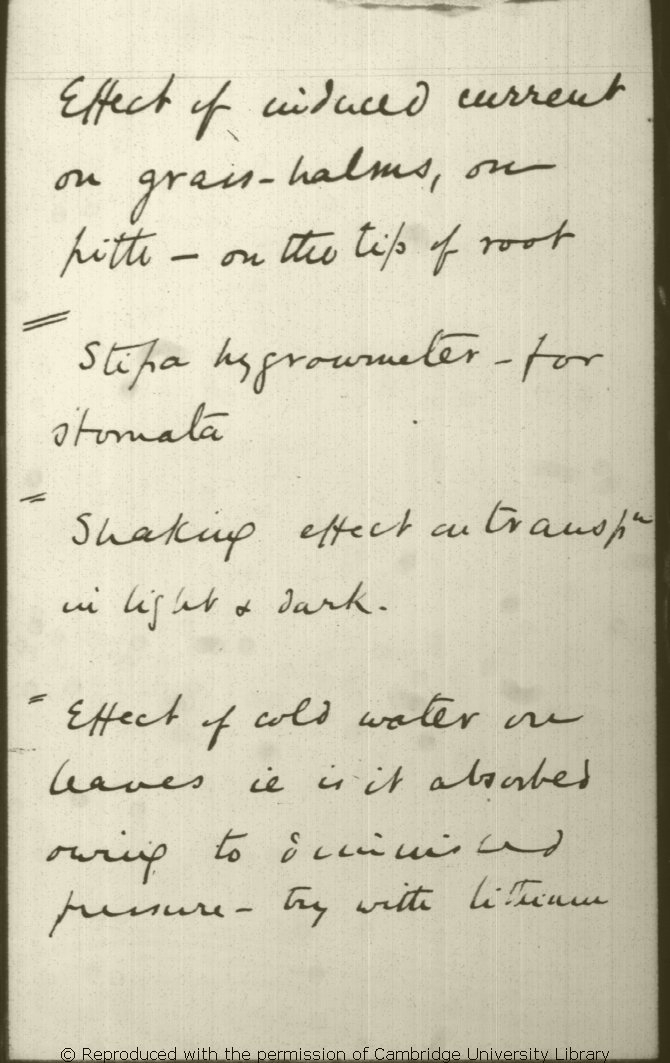 Effect of induced current
on grass-halms, on
pith – on the tip of root
Stipa hygrometer – for
stomata
Shaking effect on transpn
in light & dark.
Effect of cold water on
leaves ie is it absorbed
owing to diminished
pressure – try with lithium
© Reproduced with the permission of Cambridge University Library